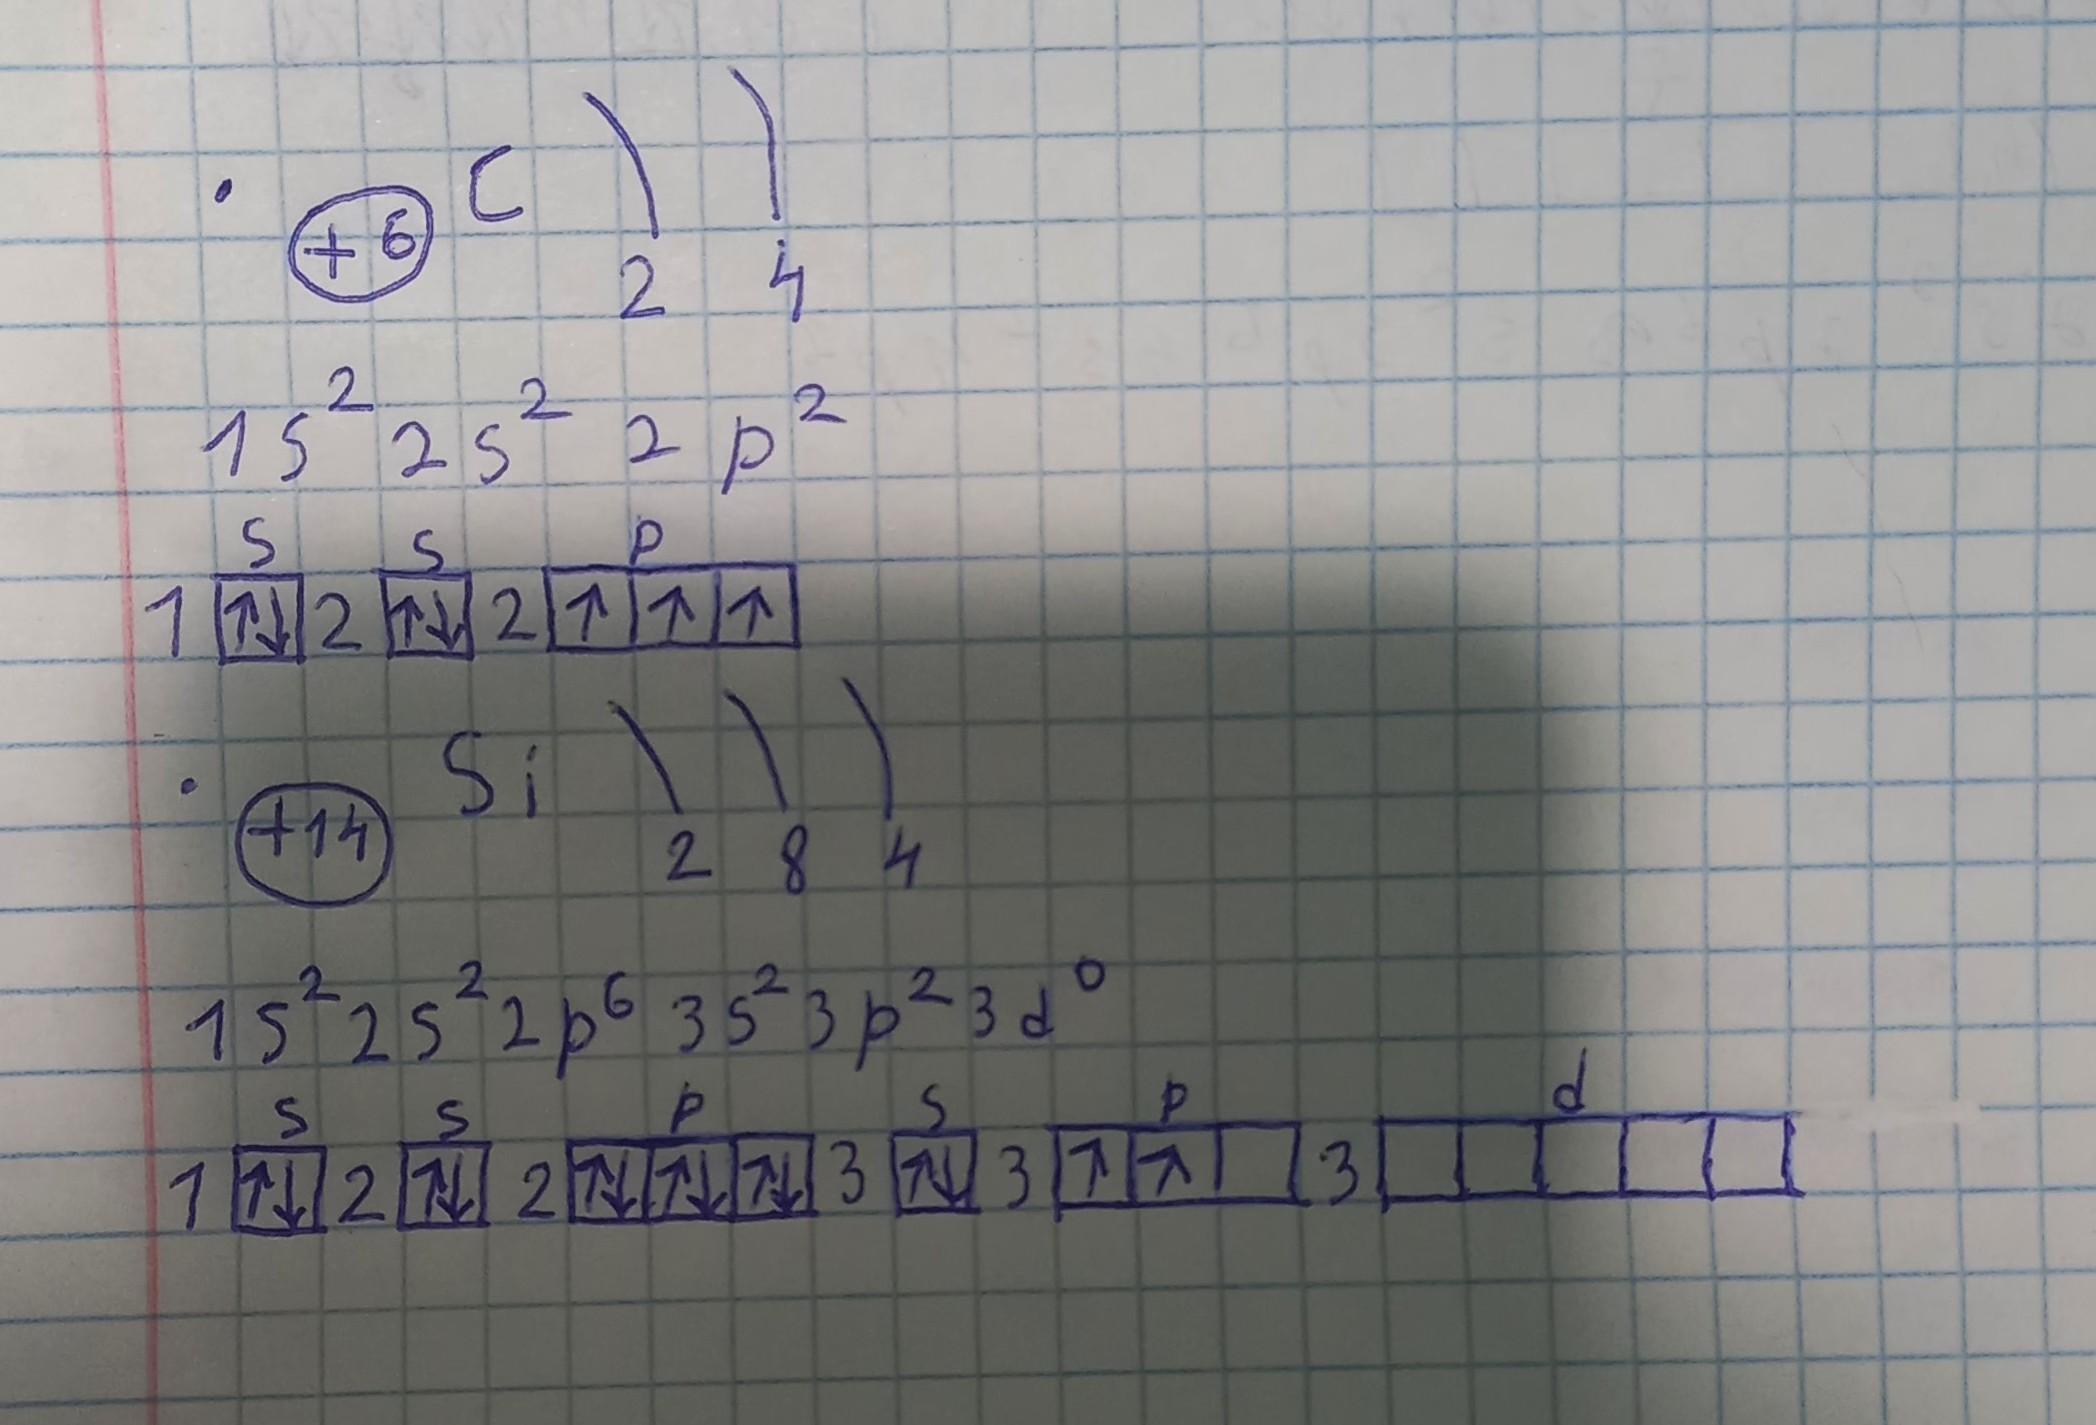 +6 C ) )
2 4
1s² 2s² 2p²
s s p
1 ↑↓ 2 ↑↓ 2 ↑ ↑ ↑
+14 Si ) ) )
2 8 4
1s² 2s² 2p⁶ 3s² 3p² 3d⁰
s s p s p d
1 ↑↓ 2 ↑↓ 2 ↑↓ ↑↓ ↑↓ 3 ↑↓ 3 ↑ ↑ 3